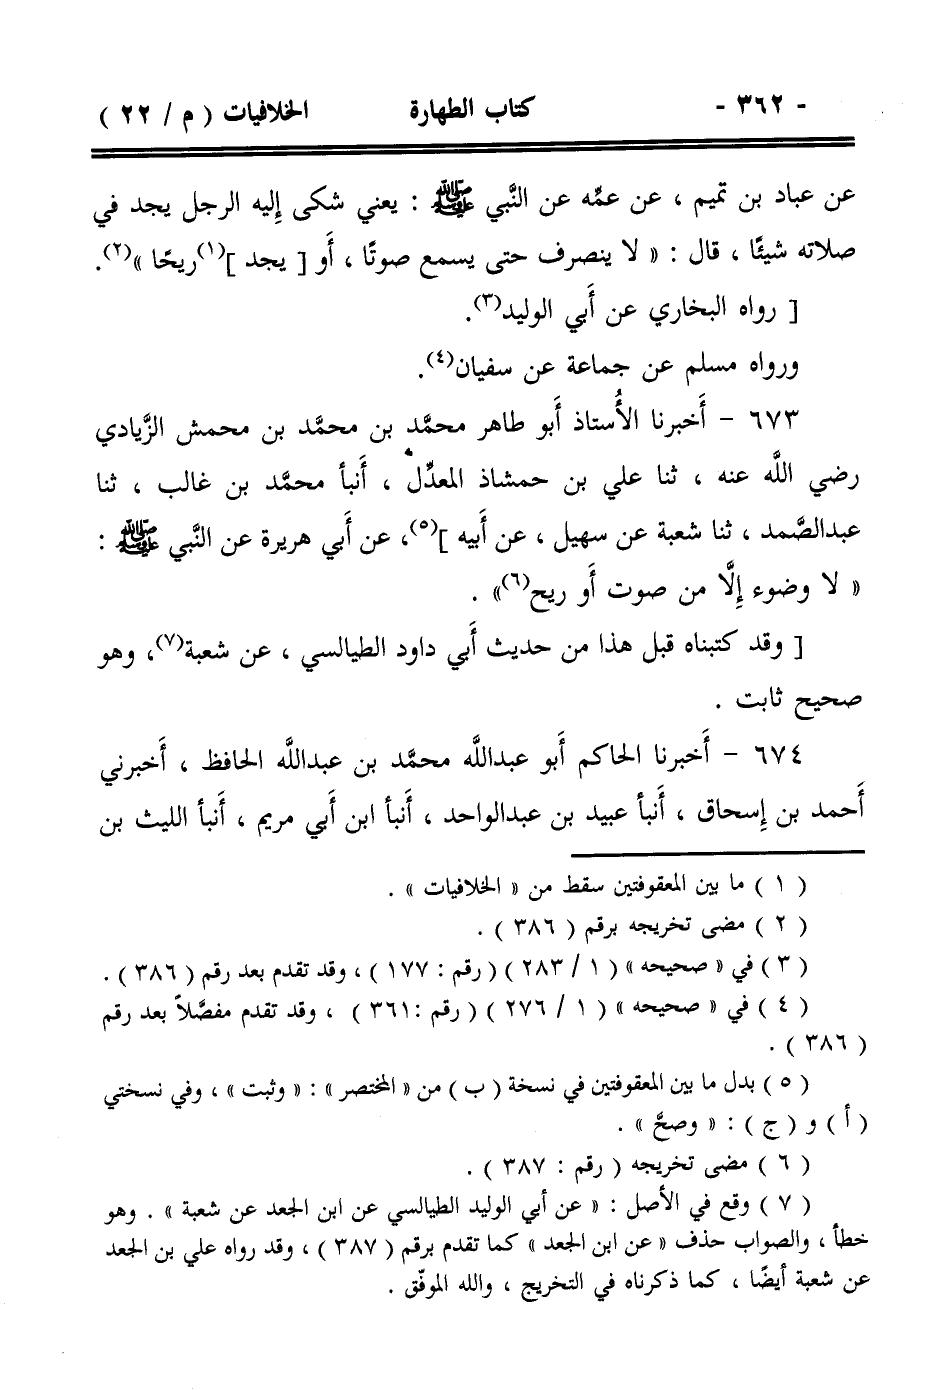 - ٣٦٢ - كتاب الطهارة الخلافيات ( م / ٢٢ )
عن عباد بن تميم ، عن عمِّه عن النَّبي ﷺ : يعني شكى إِليه الرجل يجد في
صلاته شيئًا ، قال : « لا ينصرف حتى يسمع صوتًا ، أَو [ يجد ](١)ريحًا »(٢).
[ رواه البخاري عن أَبي الوليد(٣).
ورواه مسلم عن جماعة عن سفيان(٤).
٦٧٣ - أَخبرنا الأُستاذ أَبو طاهر محمَّد بن محمَّد بن محمش الزَّيادي
رضي اللَّه عنه ، ثنا علي بن حمشاذ المعدِّل ، أَنبأ محمَّد بن غالب ، ثنا
عبدالصَّمد ، ثنا شعبة عن سهيل ، عن أَبيه ](٥)، عن أَبي هريرة عن النَّبي ﷺ :
« لا وضوء إِلَّا من صوت أَو ريح(٦)» .
[ وقد كتبناه قبل هذا من حديث أَبي داود الطيالسي ، عن شعبة(٧)، وهو
صحيح ثابت .
٦٧٤ - أَخبرنا الحاكم أَبو عبداللَّه محمَّد بن عبداللَّه الحافظ ، أَخبرني
أَحمد بن إِسحاق ، أَنبأ عبيد بن عبدالواحد ، أَنبأ ابن أَبي مريم ، أَنبأ الليث بن
( ١ ) ما بين المعقوفتين سقط من « الخلافيات » .
( ٢ ) مضى تخريجه برقم ( ٣٨٦ ) .
( ٣ ) في « صحيحه » ( ١ / ٢٨٣ ) ( رقم : ١٧٧ ) ، وقد تقدم بعد رقم ( ٣٨٦ ) .
( ٤ ) في « صحيحه » ( ١ / ٢٧٦ ) ( رقم :٣٦١ ) ، وقد تقدم مفصَّلاً بعد رقم
( ٣٨٦ ) .
( ٥ ) بدل ما بين المعقوفتين في نسخة ( ب ) من « المختصر » : « وثبت » ، وفي نسختي
( أ ) و ( ج ) : « وصحَّ » .
( ٦ ) مضى تخريجه ( رقم : ٣٨٧ ) .
( ٧ ) وقع في الأصل : « عن أبي الوليد الطيالسي عن ابن الجعد عن شعبة » . وهو
خطأ ، والصواب حذف « عن ابن الجعد » كما تقدم برقم ( ٣٨٧ ) ، وقد رواه علي بن الجعد
عن شعبة أيضًا ، كما ذكرناه في التخريج ، والله الموفّق .